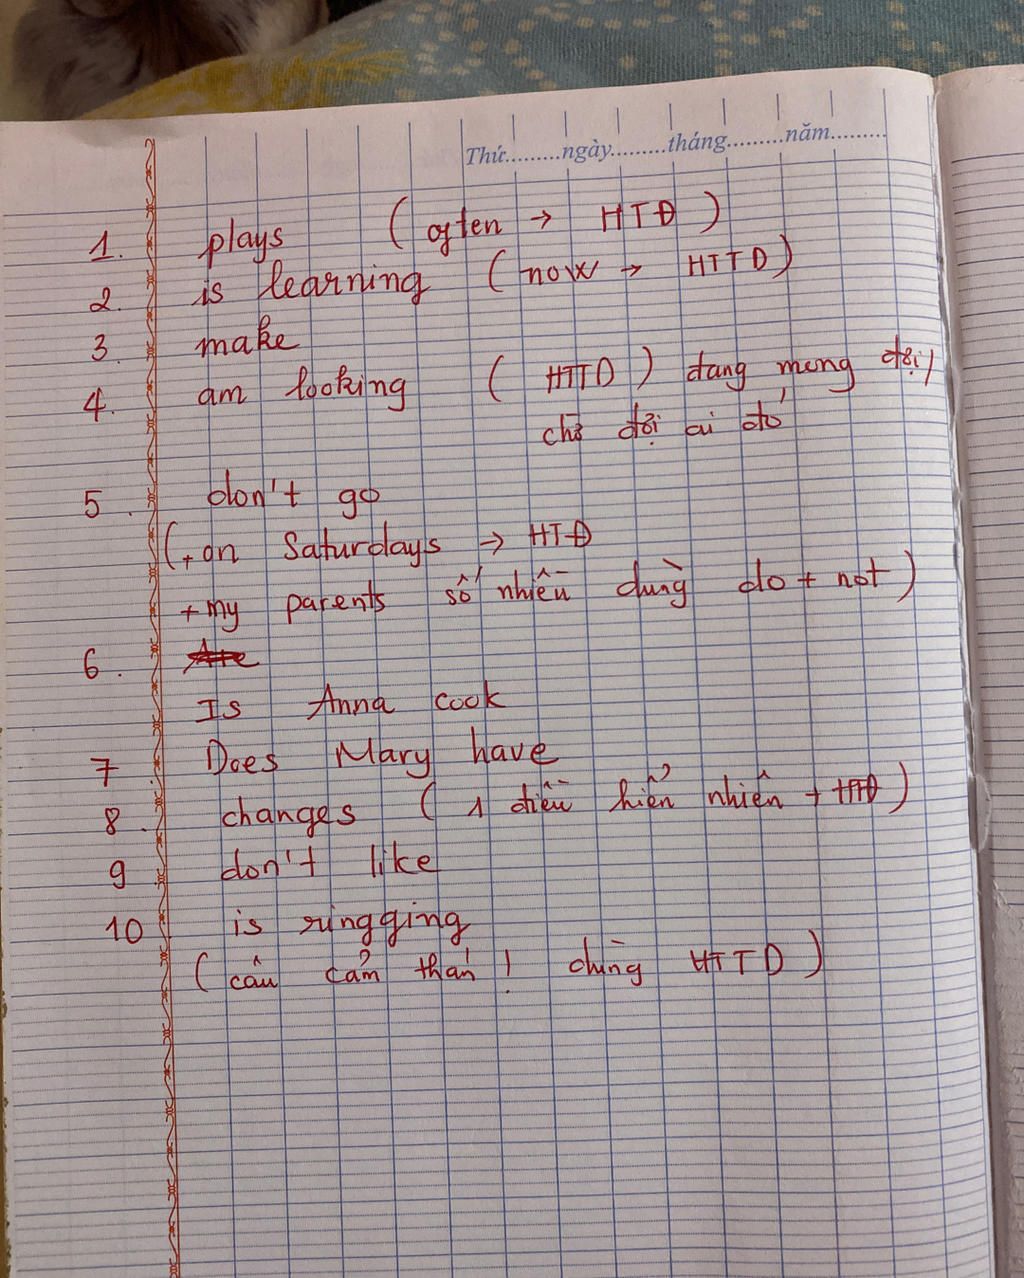 Thứ.........ngày.........tháng.........năm.........
1. plays (often → HTĐ)
2. is learning (now → HTTD)
3. make
4. am looking (HTTD) đang mong đợi/
chờ đợi ai đó
5. don't go
(+ on Saturdays → HTĐ
+ my parents số nhiều dùng do + not)
6. Are
Is Anna cook
7. Does Mary have
8. changes (1 điều hiển nhiên + HTĐ)
9 don't like
10 is ringging
(câu cảm thán! dùng HTTD)